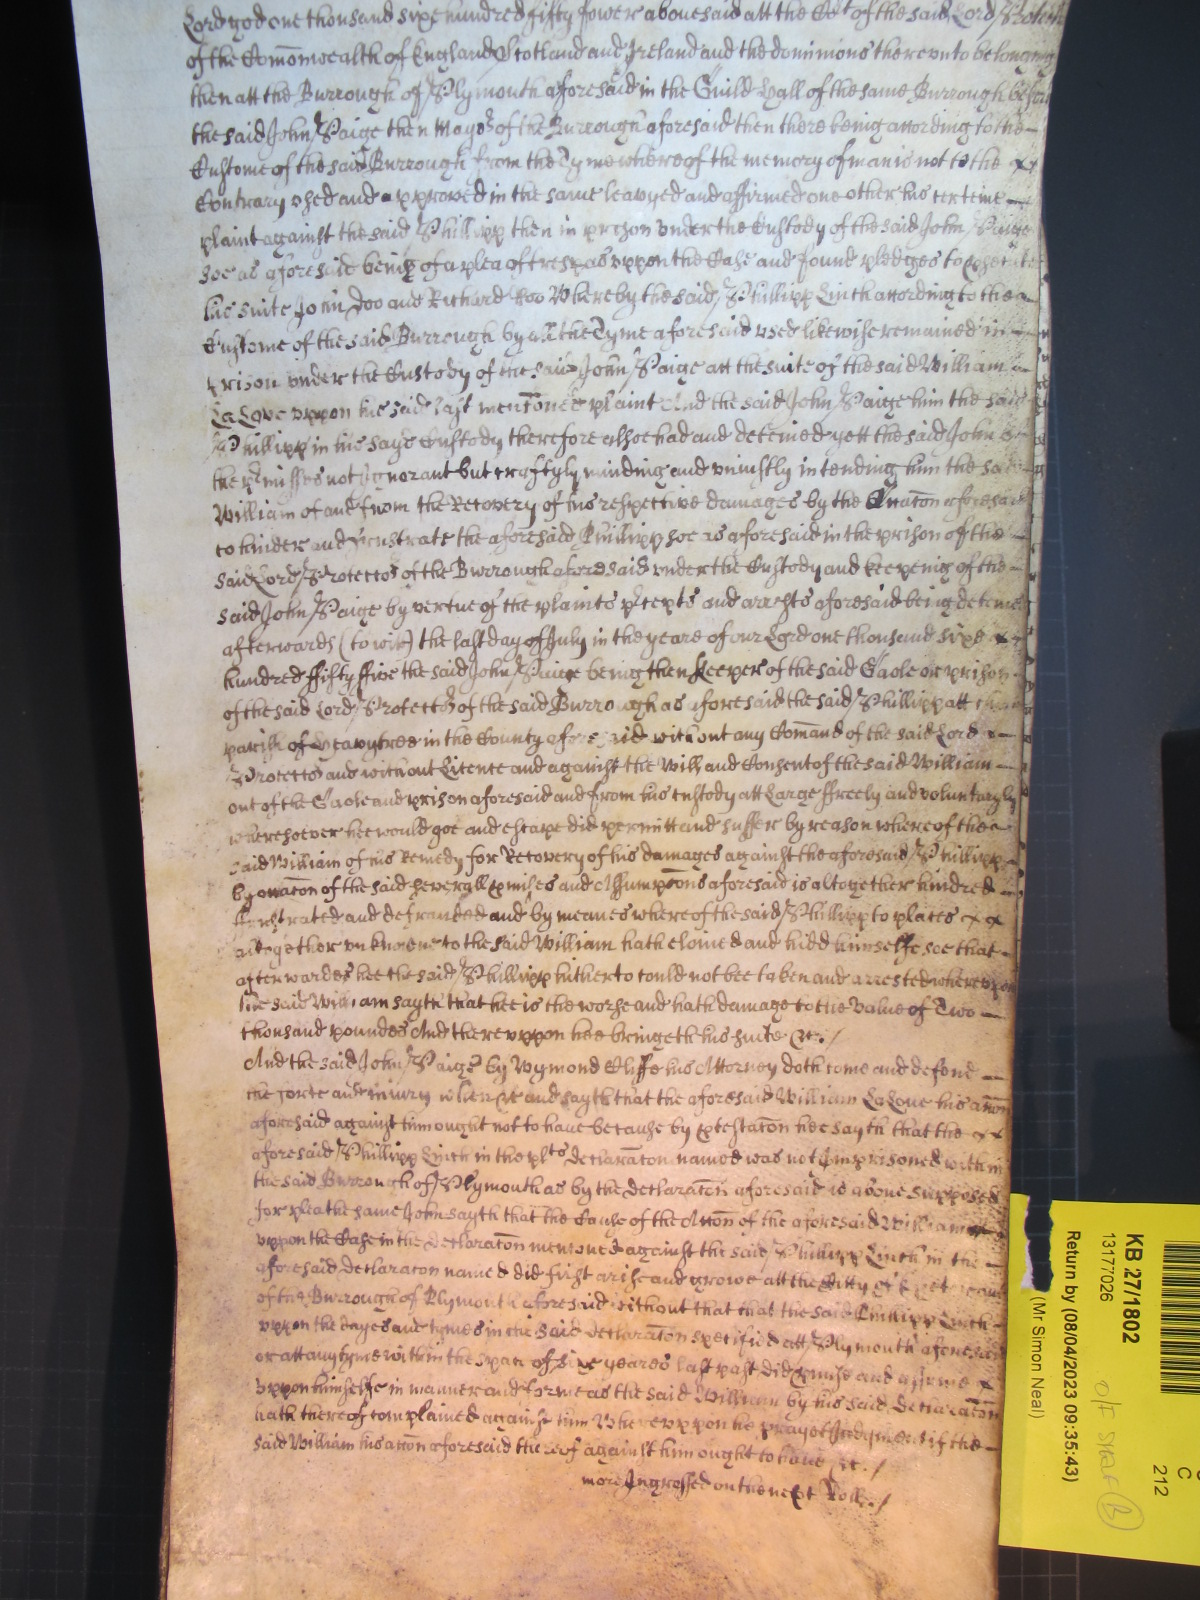 Lord god one thousand sixe hundred fifty fower abovesaid att the Cot of the said Lord Protector
of the Comonwealth of England Scotland and Ireland and the dominions thereunto belonging
then att the Burrough of Plymouth aforesaid in the Guild Hall of the same Burrough before
the said John Paige then Mayor of the Burrough aforesaid then there being according to the
Custome of the said Burrough from the Tyme whereof the memory of man is not to the
Contrary used and approved in the same leavyed and affirmed one other his certeine
plaint against the said Phillipp then in prison under the Custody of the said John Paige
soe as aforesaid being of a plea of trespas uppon the Case and found pledges to prosecute
his suite John Doo and Richard Roo Whereby the said Phillipp Linch according to the
Custome of the said Burrough by all the Tyme aforesaid used likewise remained in
prison under the Custody of the said John Paige att the suite of the said William
LaLove uppon his said last mencioned plaint And the said John Paige him the said
Phillipp in his safe Custody therefore alsoe had and deteined yett the said John
the pmisses not Ignorant but craftyly minding and uniustly intending him the said
William of and from the Recovery of his respective damages by the aforesaid
to hinder and frustrate the aforesaid Phillipp soe as aforesaid in the prison of the
said Lord Protector of the Burrough aforesaid under the Custody and keepeing of the
said John Paige by vertue of the plaints pcepts and arrests aforesaid being deteined
afterwards (to witt) the last day of July in the yeare of our Lord one thousand sixe
hundred ffifty ffive the said John Paige being then keeper of the said Gaole or prison
of the said Lord Protector of the said Burrough as aforesaid the said Phillipp att the
parish of Heavytree in the County aforesaid without any Comand of the said Lord
Protector and without Licence and against the Will and Consent of the said William
out of the Gaole and prison aforesaid and from his custody att Large ffreely and voluntaryly
wheresoever hee would goe and escape did permitt and suffer by reason whereof the
said William of his Remedy for Recovery of his damages against the aforesaid Phillipp
by occacon of the said severall pmises and Assumpcons aforesaid is altogether hindred
ffrustrated and defrauded and by meanes whereof the said Phillipp to places
altogether unknowne to the said William hath eloined and hidd himselfe soe that
afterwardes hee the said Phillipp hitherto could not bee taken and arrested whereuppon
the said William sayth that hee is the worse and hath damage to the value of Two
thousand poundes And thereuppon hee bringeth his suite &c. /
And the said John Paige by Wymond Cliffe his Attorney doth come and defend
the force and iniury when &c and sayth that the aforesaid William LaLove his accon
aforesaid against him ought not to have because by ptestacon hee sayth that the
aforesaid Phillipp Linch in the plts declaracon named was not Imprisoned within
the said Burrough of Plymouth as by the declaracon aforesaid is above supposed
for plea the same John sayth that the Cause of the Accon of the aforesaid William
uppon the Case in the declaracon menconed against the said Phillipp Linch in the
aforesaid declaracon named did first arise and growe att the Citty of
of the Burrough of Plymouth aforesaid without that that the said Phillipp Linch
uppon the dayes and tymes in the said declaracon specified att Plymouth aforesaid
or att any tyme within the space of sixe yeares last past did pmise and assume
uppon himselfe in manner and forme as the said William by his said declaracon
hath thereof complained against him Whereuppon he prayeth Judgment if the
said William his accon aforesaid thereof against him ought to have &c. /
more Ingrossed on the next Roll. /
KB 27/1802
13177026
Return by (08/04/2023 09:35:43)
(Mr Simon Neal)
C
212
O/F